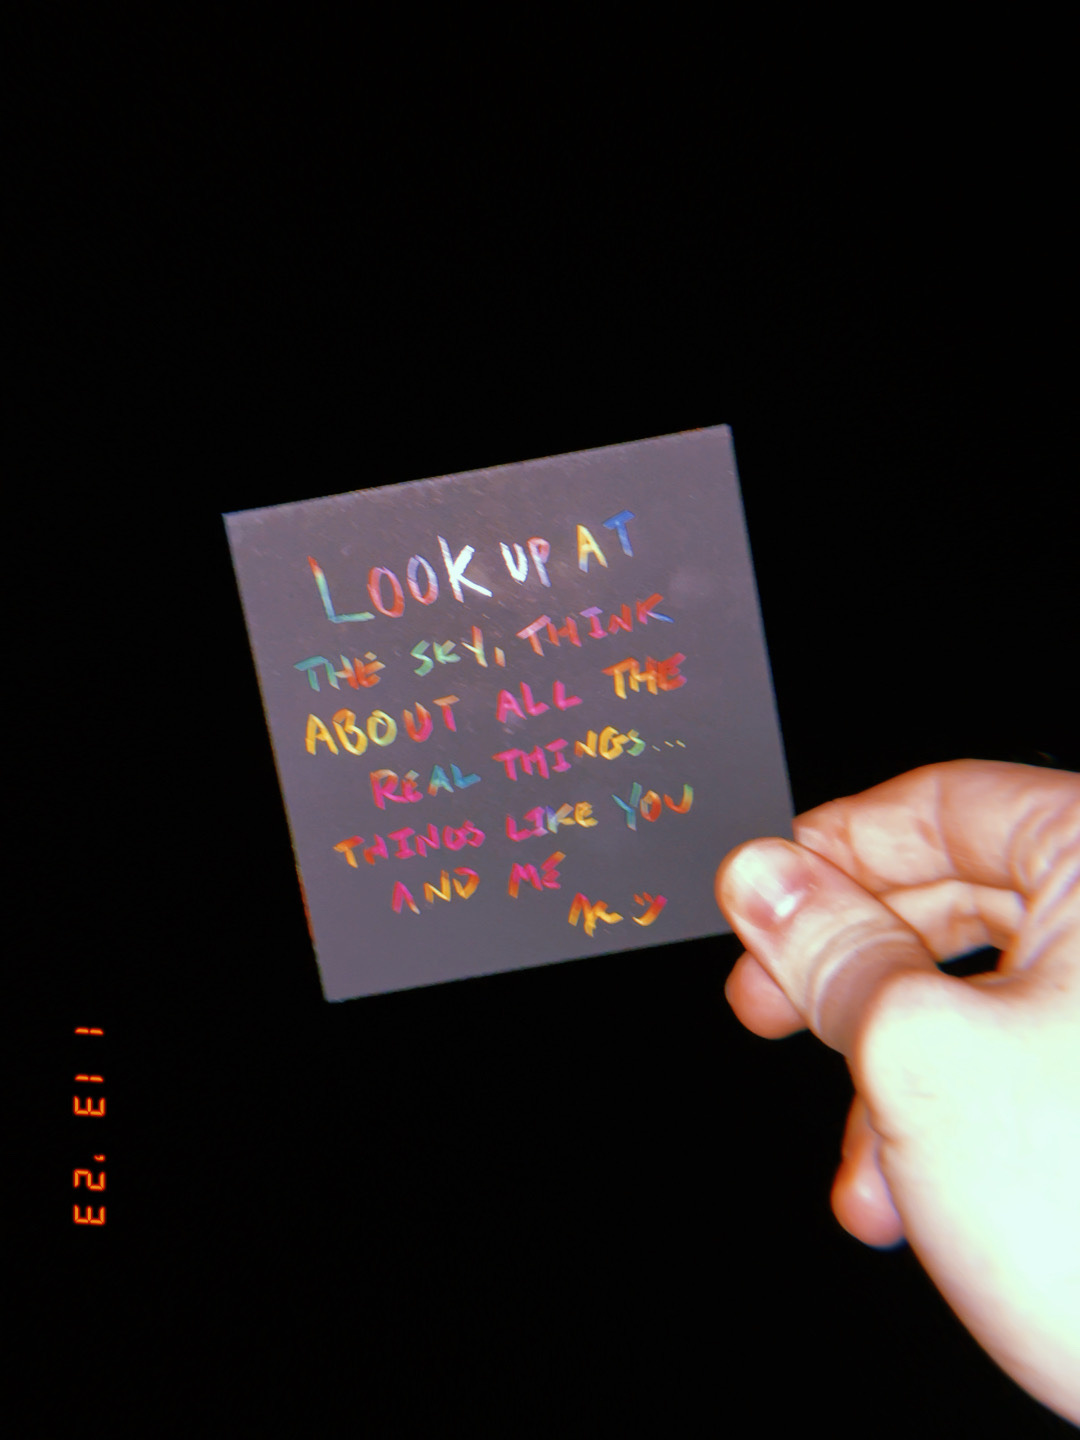 LOOK UP AT
THE SKY, THINK
ABOUT ALL THE
REAL THINGS...
THINGS LIKE YOU
AND ME
1 13 '23